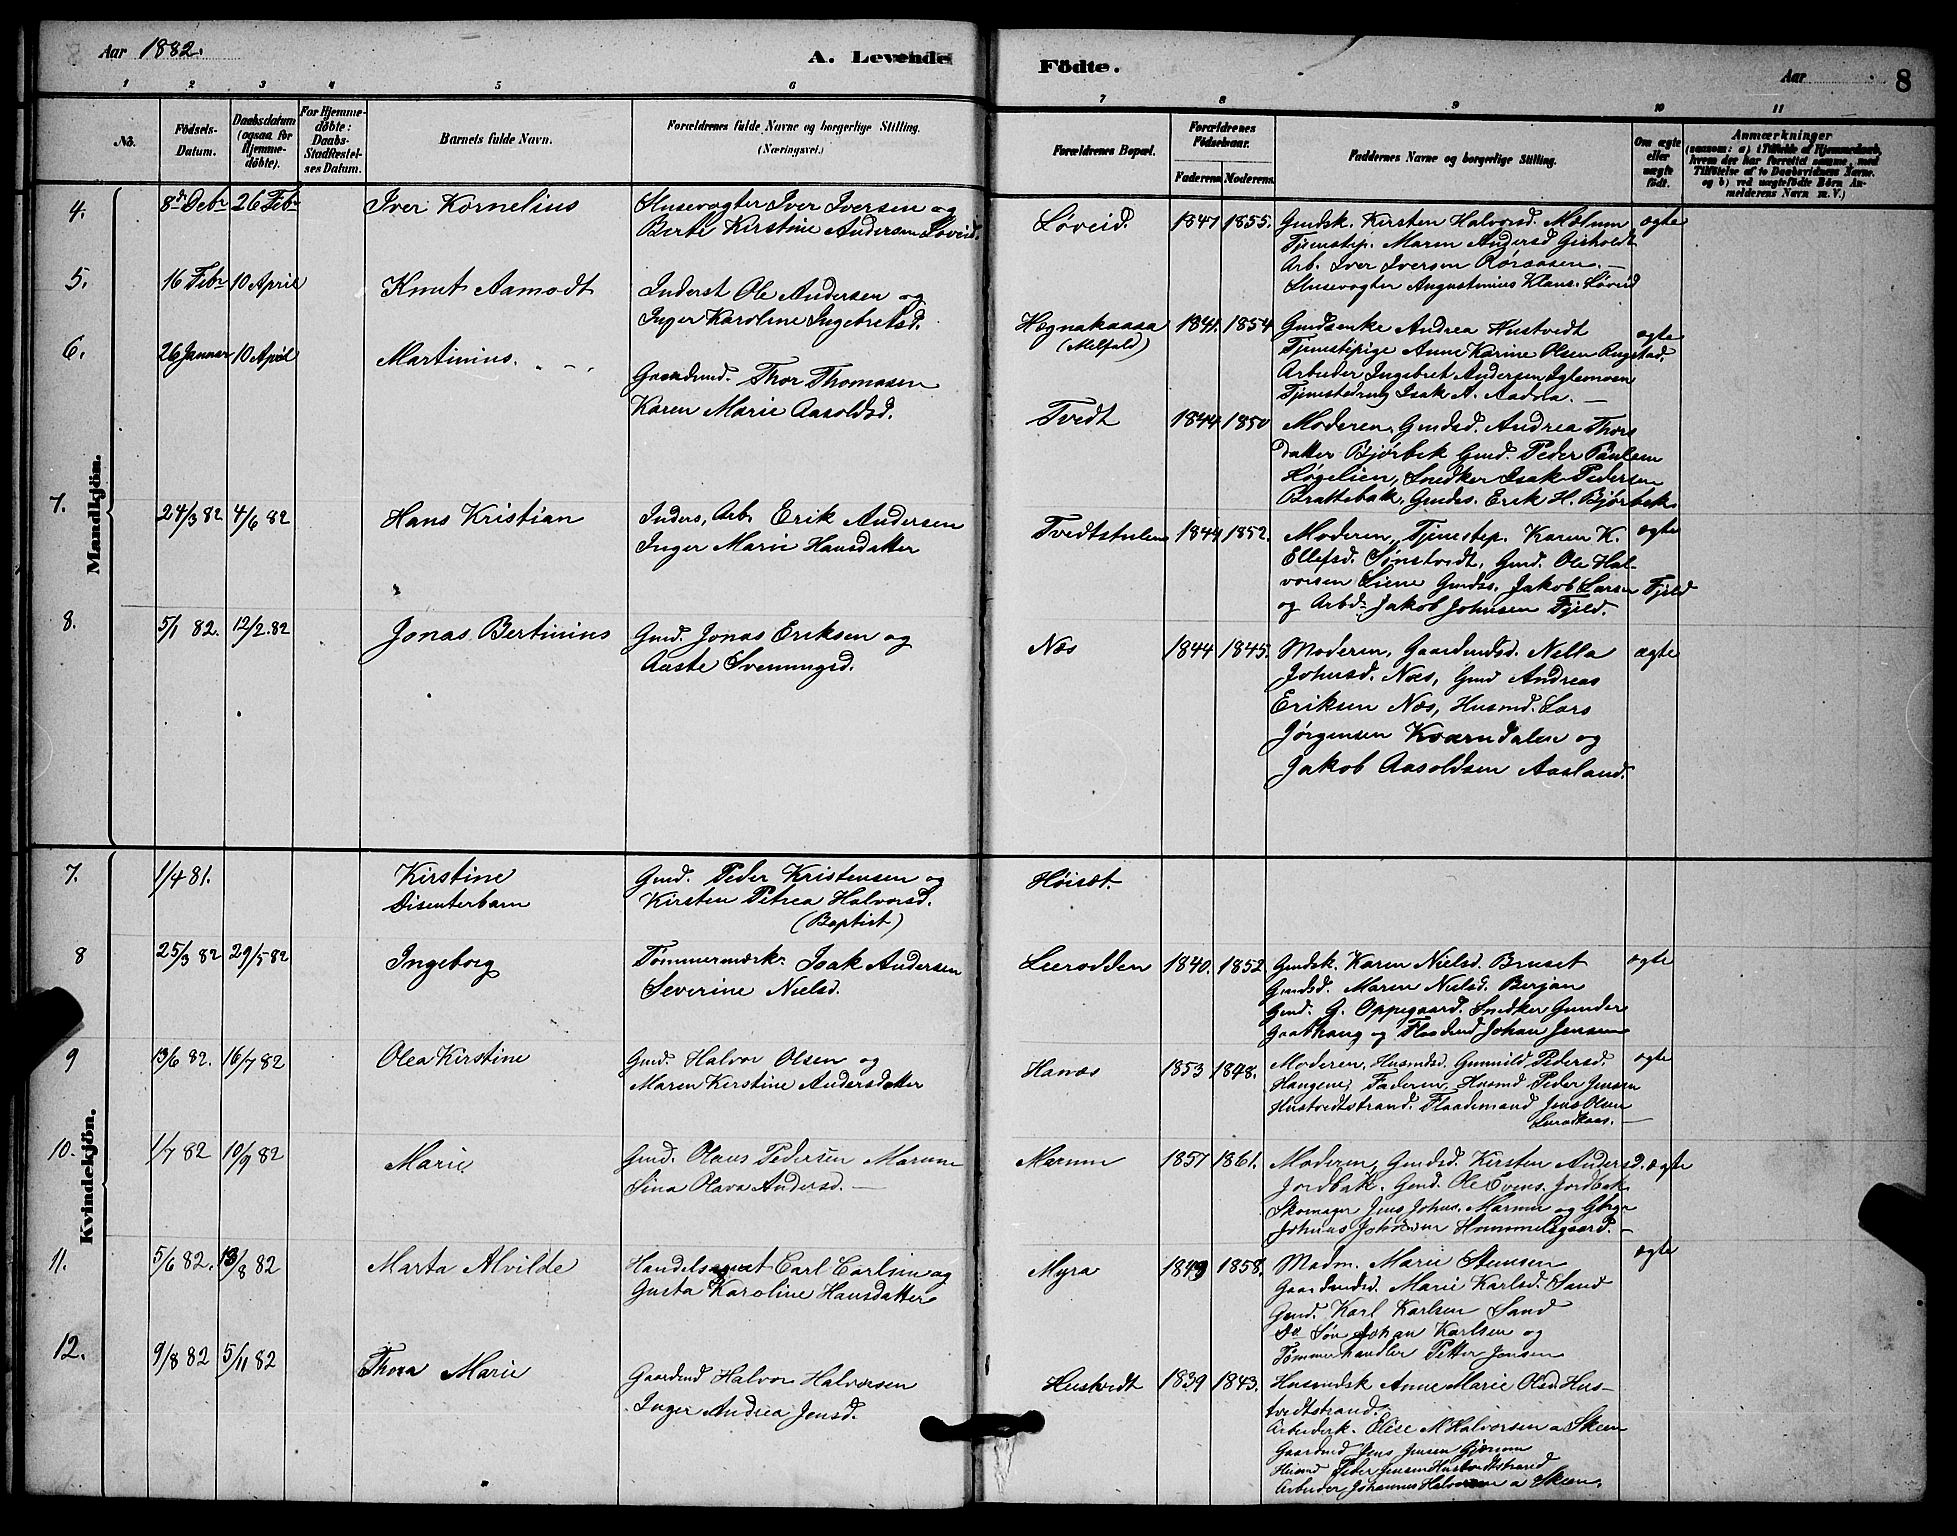 8 Aar 1882.
A. Levende Fødte.
Aar 8
1 2 3 4 5 6 7 8 9 10 11
No.
Fødsels-Datum.
Daabsdatum (ogsaa for Hjemme-døbte).
For Hjemme-døbte: Daabs-Stadfæstel-ses Datum.
Barnets fulde Navn.
Forældrenes fulde Navne og borgerlige Stilling. (Næringsvei.)
Forældrenes Bopæl.
Forældrenes Fødselsaar.
Faderens Moderens
Faddernes Navne og borgerlige Stilling.
Om ægte eller uægte født.
Anmærkninger
(saasom: a) i Tilfælde af Hjemmedaab, hvem der har forrettet samme, med Tilføielse af to Daabsvidners Navne. og b) ved uægtefødte Børn An-melderens Navn m. V.)
Mandkjön.
4. 8de Debr 26 Febr Iver Kornelius
Husevogter Iver Iversen og
Berte Kirstine Andersen Løveid.
Løveid. 1847 1855. ægte
Gmdsk. Kirsten Halvorsd. Mælum
Tjenestep. Maren Andersd Gisholdt
Arb. Iver Iversen Röraasen. —
Husevogter Augustinius Klaus. Løveid
5. 16 Febr 10 April Knut Aamodt
Inderst Ole Andersen og
Inger Karoline Ingebretsd.
Hægnakaasa (Melfald) 1841. 1854 ægte
Gmdsenke Andrea Hustvedt
Tjenestepige Anne Karine Olsen Rugstad.
Arbeider Ingebret Andersen Iglemosen
Tjenestedreng Isak A. —
6. 26 Januar 10 April Martinius.
Gaardmd. Thor Thomasen
Karen Marie Aasoldsd.
Tvedt 1844 1850
Moderen, Gmdsd. Andrea Thors
datter Bjørbek Gmd. Peder Paulsen
Høgelien, Snedker Isak Pedersen
Brattebak, Gmdss. Erik H. Bjørbek
7. 24/3 82 4/6 82 Hans Kristian
Inders, Arb. Erik Andersen
Inger Marie Hansdatter
Tvedtstulen 1844 1852. ægte
Moderen, Tjenestep. Karen K.
Ellefsd. Sønstvedt, Gmd. Ole Hal-
vorsen Liene Gmdss. Jakob Larsen Fjeld
og Arbd. Jakob Johnsen Fjeld.
8. 5/1 82. 12/2.82 Jonas Bertinius
Gmd. Jonas Eriksen og
Aaste Svenningsd.
Næs 1844 1845. ægte
Moderen, Gaardmdsd. Nella
Johnsd. Næs, Gmd Andreas
Eriksen Næs, Husmd. Lars
Jørgensen Kværndalen og
Jakob Aasoldsen Aasland.
Kvindekjön.
7. 1/4 81. Kirstine
Disenterbarn
Gmd. Peder Kristensen og
Kirsten Petrea Halvorsd.
(Baptist)
Høisæt.
8 25/3 82 29/5 82 Ingeborg
Tømmermærk. Isak Andersen
Severine Nielsd.
Leerodden 1840. 1852 ægte
Gmdsk. Karen Nielsd. Bruset
Gmdsd. Maren Nielsd. Berjan
Gmd. G. Oppegaard. Snedker Gunder
Gaathaug og Flaadmd Johan Jensen
9 13/6 82. 16/7 82 Olea Kirstine
Gmd. Halvor Olsen og
Maren Kirstine Andersdatter
Hanæs 1853 1848. ægte
Moderen, Husmdsd. Gunnild Pedersd.
Haugene, Faderen, Husmd Peder Jensen
Hustvedtstrand. Flaademand Jens Olsen
10. 1/7 82 10/9 82 Marie
Gmd. Olaus Pedersen Marum
Sina Olava Andersd. —
Marum 1857 1861. ægte
Moderen, Gmdsd. Kirsten Andersd.
Jordbak. Gmd. Ole Evens. Jordbak
Skomager Jens Johns. Marum og Gbrgr
Johnas Johnsen Hommelsgaard. —
11. 5/6 82. 13/8 82 Marta Alvilde
Handelsagent Carl Carlsen og
Gusta Karoline Hansdatter
Myra 1849 1858. ægte
Madm. Marie Stensen
Gaardmdsd. Marie Karlsd. Sand
Gmd. Karl Karlsen Sand
Do Søn Johan Karlsen og
Tømmerhandler Petter Jensen
12. 9/8 82 5/11 82 Thora Marie
Gaardmd Halvor Halvorsen
Inger Andrea Jensd.
Hustvedt 1839 1843.
Husmdsk Anne Marie Olsd. Hus-
tvedtstrand.
Arbeiderk. Elise M Halvorsen a Skeen
Gaardmd Jens Jensen Gjærum
Husmd Peder Jensen Hustvedtstrand
Arbeider Johannes Halvorsen a Skeen.